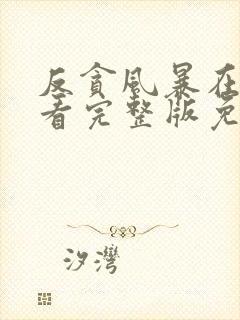 反貪風暴在
看完整版免
汐灣